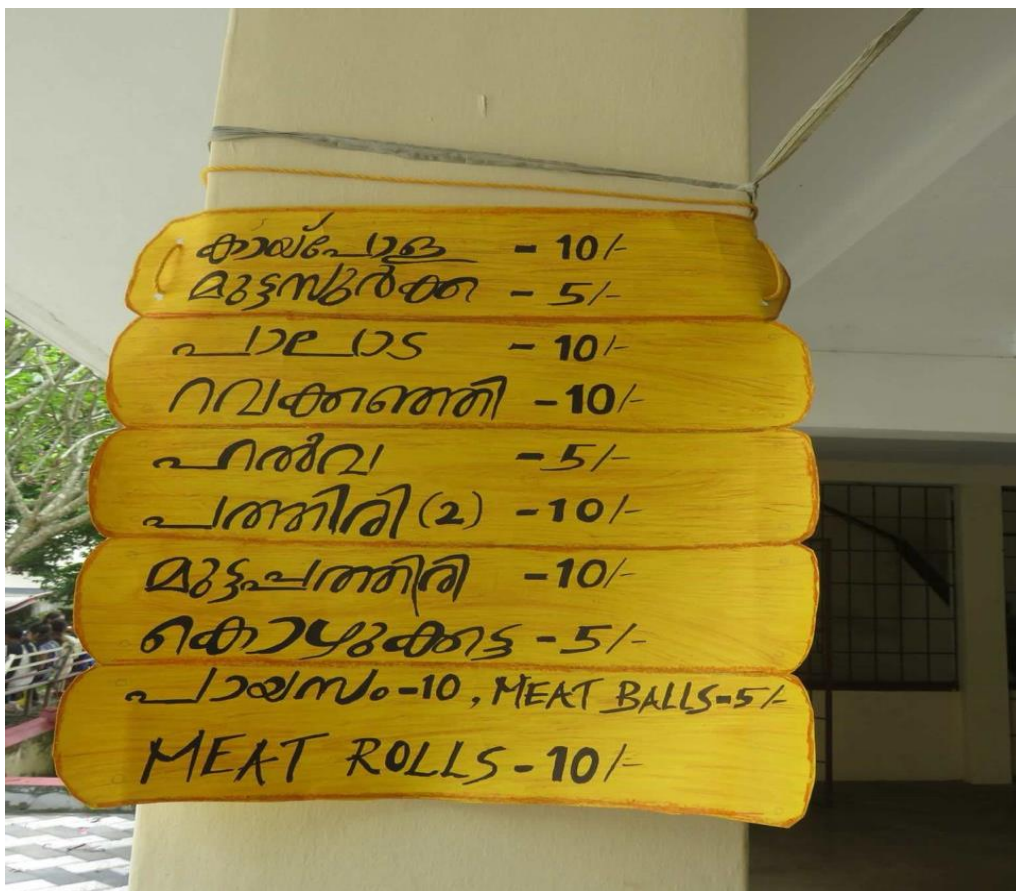 കായ്പോള - 10/-
മുട്ടസുർക്ക - 5/-
പാലാട - 10/-
റവക്കഞ്ഞി - 10/-
ഹൽവ - 5/-
പത്തിരി (2) - 10/-
മുട്ടപ്പത്തിരി - 10/-
കൊഴുക്കട്ട - 5/-
പായസം - 10, MEAT BALLS - 5/-
MEAT ROLLS - 10/-